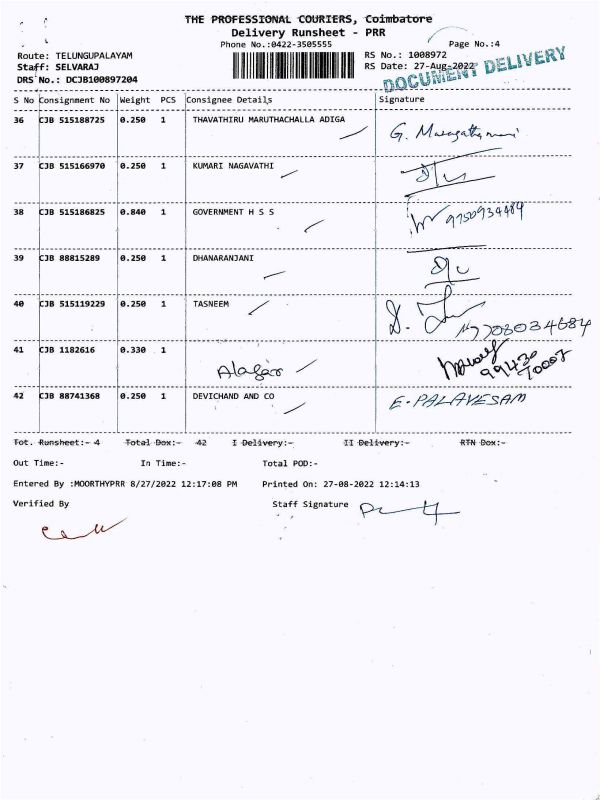 THE PROFESSIONAL COURIERS, Coimbatore
Delivery Runsheet - PRR
Phone No.:0422-3505555
Page No.:4
Route: TELUNGUPALAYAM
RS No.: 1008972
Staff: SELVARAJ
RS Date: 27-Aug-2022
DRS No.: DCJB100897204
DOCUMENT DELIVERY
S No Consignment No Weight PCS Consignee Details Signature
36 CJB 515188725 0.250 1 THAVATHIRU MARUTHACHALLA ADIGA G.
37 CJB 515166970 0.250 1 KUMARI NAGAVATHI
38 CJB 515186825 0.840 1 GOVERNMENT H S S 9750934484
39 CJB 88815289 0.250 1 DHANARANJANI
40 CJB 515119229 0.250 1 TASNEEM
41 CJB 1182616 0.330 1 Alagar
42 CJB 88741368 0.250 1 DEVICHAND AND CO E. PALAYESAM
Tot. Runsheet:- 4 Total Dox:- 42 I Delivery:- II Delivery:- RTN Dox:-
Out Time:- In Time:- Total POD:-
Entered By :MOORTHYPRR 8/27/2022 12:17:08 PM Printed On: 27-08-2022 12:14:13
Verified By Staff Signature